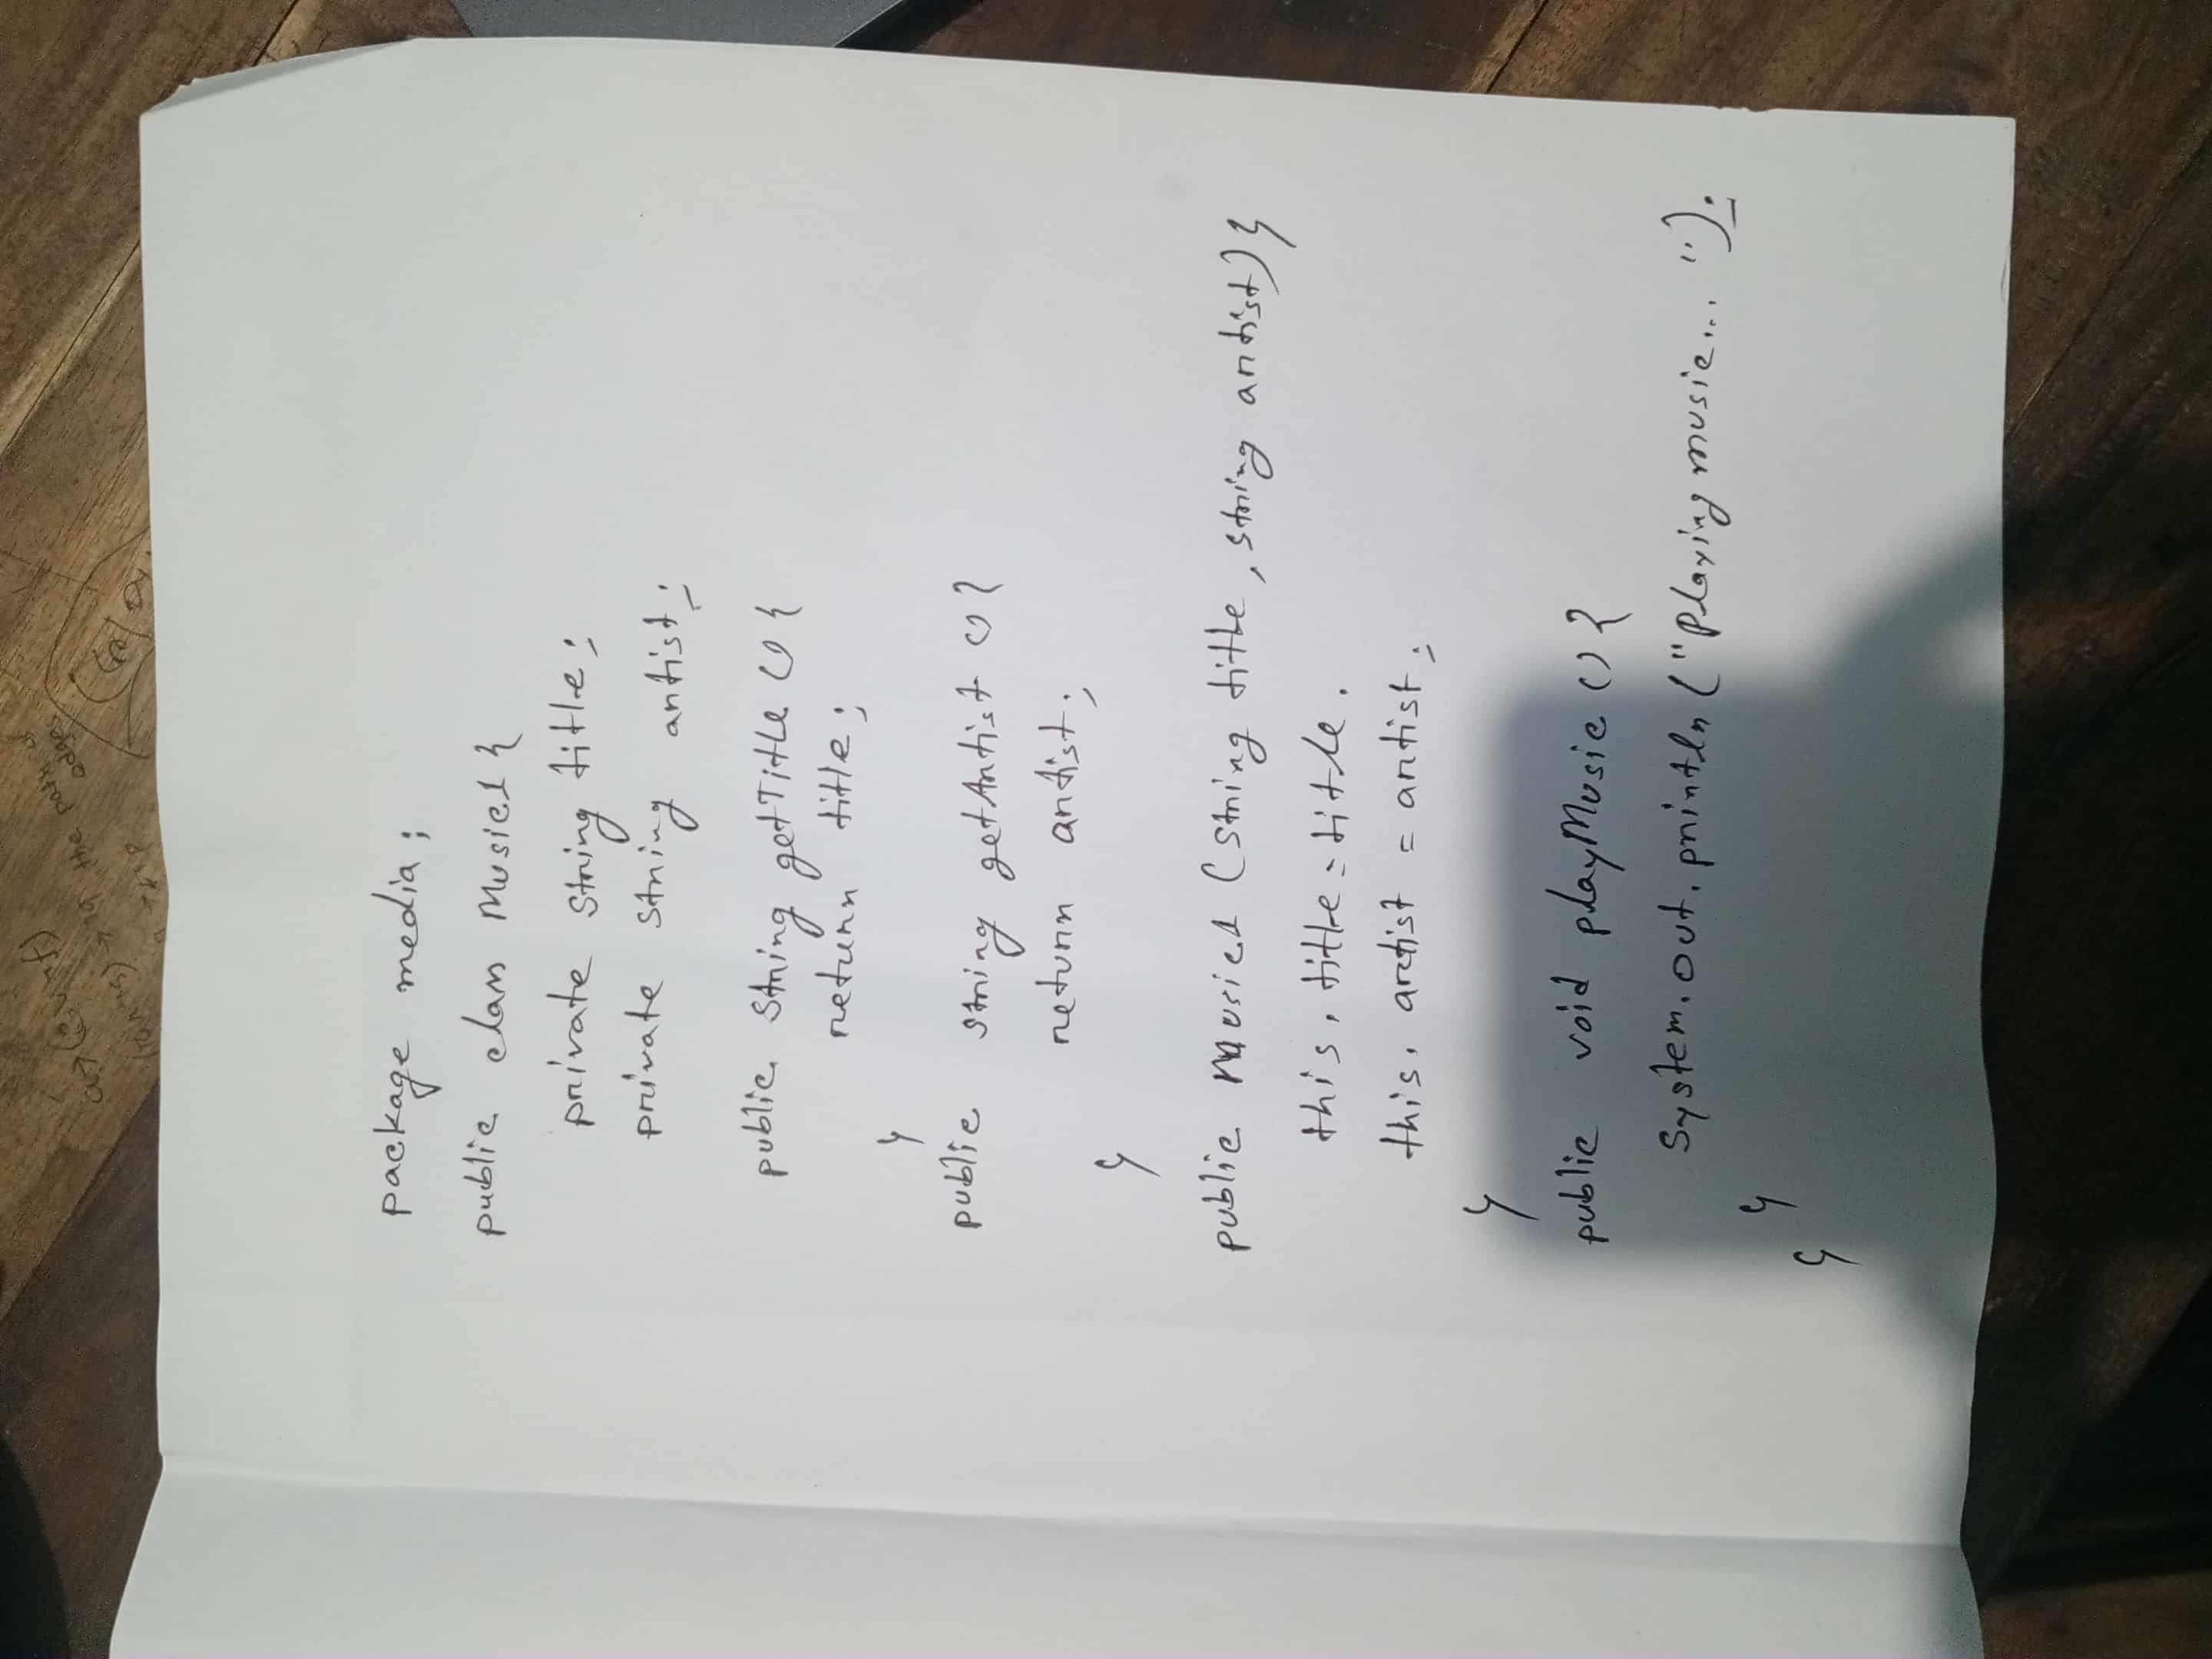 package media;
public class Music1 {
private String title;
private String artist;
public String getTitle () {
return title;
}
public String getArtist () {
return artist;
}
public Music1 (String title, String artist) {
this.title = title.
this.artist = artist;
}
public void playMusic () {
System.out.println ("Playing music...");
}
}